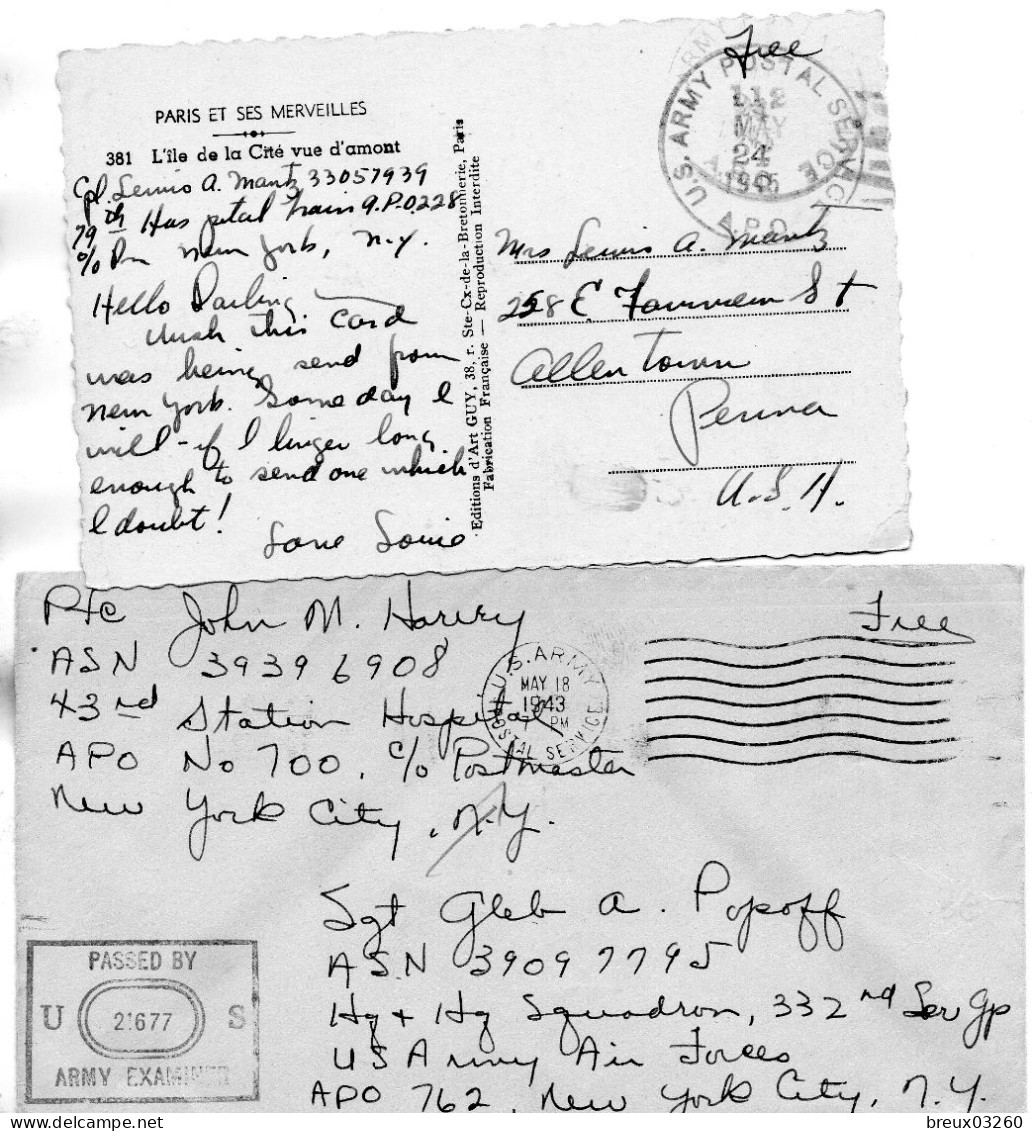 Free
U.S. ARMY POSTAL SERVICE
MAY
24
1945
A.P.O.
PARIS ET SES MERVEILLES
381 L'île de la Cité vue d'amont
Cpl. Lewis A. Mantz 33057939
79th Hospital Train A.P.O. 228
c/o Pm New York, N.Y.
Hello Darling
Wish this card
was being send from
New York. Some day I
will - if I linger long
enough to send one which
I doubt!
Love Louie
Editions d'Art GUY, 38, r. Ste-Cx-de-la-Bretonnerie, Paris
Fabrication Française — Reproduction Interdite
Mrs Lewis A. Mantz
258 E. Fairview St
Allentown
Penna
U.S.A.
Pfc John M. Harvey
ASN 39396908
43rd Station Hospital
APO No 700, c/o Postmaster
New York City, N.Y.
Free
U.S. ARMY
MAY 18
1943
PM
POSTAL SERVICE
Sgt Gleb A. Popoff
ASN 39097795
Hq + Hq Squadron, 332nd Ser Gp
US Army Air Forces
APO 762, New York City, N.Y.
PASSED BY
U 21677 S
ARMY EXAMINER
breux03260